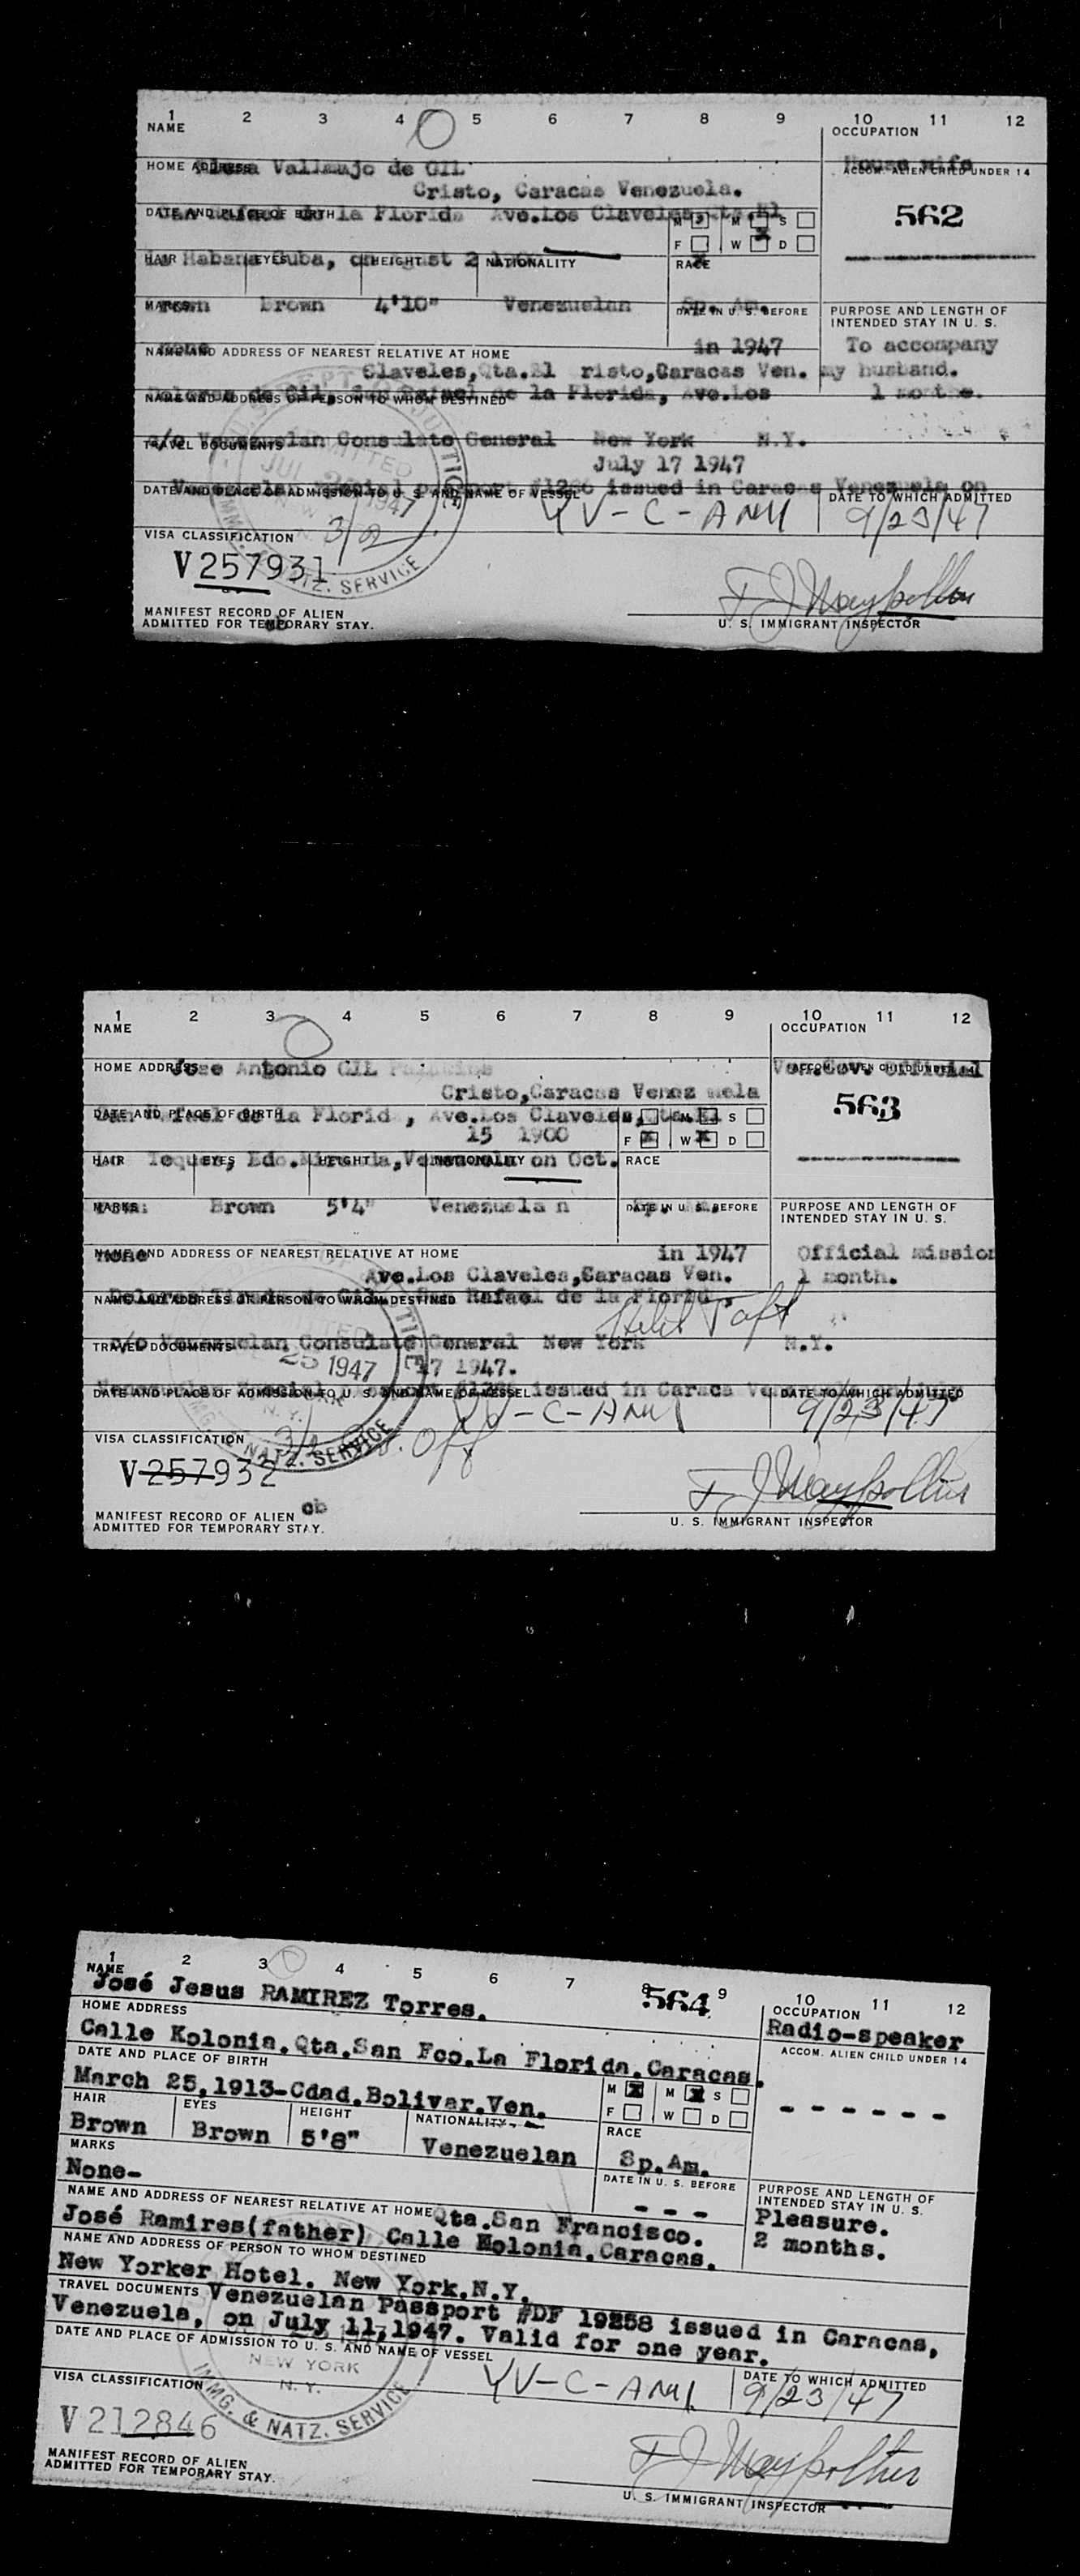 1 2 3 4 5 6 7 8 9 10 11 12
NAME
OCCUPATION
HOME ADDRESS
Vallmajo de GIL
House wife
ACCOM. ALIEN CHILD UNDER 14
Cristo, Caracas Venezuela.
562
DATE AND PLACE OF BIRTH
la Florida Ave.Los Claveles
M M S
F W D
HAIR EYES HEIGHT NATIONALITY RACE
Habana Cuba,
Brown 4'10" Venezuelan Sp. Am.
MARKS
DATE IN U. S. BEFORE
PURPOSE AND LENGTH OF
INTENDED STAY IN U. S.
none
in 1947
To accompany
NAME AND ADDRESS OF NEAREST RELATIVE AT HOME
Claveles,Qta.El risto,Caracas Ven. my husband.
de la Florida, Ave.Los
NAME AND ADDRESS OF PERSON TO WHOM DESTINED
c/o Venezuelan Consulate General New York N.Y.
TRAVEL DOCUMENTS
July 17 1947
issued in Caracas Venezuela on
DATE AND PLACE OF ADMISSION TO U. S. AND NAME OF VESSEL
DATE TO WHICH ADMITTED
YV-C-ANU
9/23/47
VISA CLASSIFICATION
3/2
V257931
NATZ. SERVICE
MANIFEST RECORD OF ALIEN
ADMITTED FOR TEMPORARY STAY.
U. S. IMMIGRANT INSPECTOR
1 2 3 4 5 6 7 8 9 10 11 12
NAME
OCCUPATION
HOME ADDRESS
Jose Antonio GIL
Ven.Gov. Official
ACCOM. ALIEN CHILD UNDER 14
Cristo,Caracas Venez uela
563
DATE AND PLACE OF BIRTH
de la Florid , Ave.Los Claveles,
15 1900
M M S
F W D
HAIR EYES HEIGHT NATIONALITY RACE
on Oct.
Brown 5'4" Venezuela n
MARKS
DATE IN U. S. BEFORE
PURPOSE AND LENGTH OF
INTENDED STAY IN U. S.
none
in 1947
Official mission
NAME AND ADDRESS OF NEAREST RELATIVE AT HOME
Ave.Los Claveles,Saracas Ven.
1 month.
Rafael de la Florid
NAME AND ADDRESS OF PERSON TO WHOM DESTINED
c/o Venezuelan Consulate General New York N.Y.
TRAVEL DOCUMENTS
25 1947
17 1947.
issued in Caraca
DATE AND PLACE OF ADMISSION TO U. S. AND NAME OF VESSEL
DATE TO WHICH ADMITTED
YV-C-ANU
9/23/47
VISA CLASSIFICATION
V257932
NATZ. SERVICE
cb
MANIFEST RECORD OF ALIEN
ADMITTED FOR TEMPORARY STAY.
U. S. IMMIGRANT INSPECTOR
1 2 3 4 5 6 7 8 9 10 11 12
NAME
José Jesus RAMIREZ Torres.
564
OCCUPATION
Radio-speaker
HOME ADDRESS
Calle Kolonia.Qta.San Fco.La Florida.Caracas.
ACCOM. ALIEN CHILD UNDER 14
DATE AND PLACE OF BIRTH
March 25,1913-Cdad.Bolivar.Ven.
M X M X S
F W D
------
HAIR EYES HEIGHT NATIONALITY RACE
Brown Brown 5'8" Venezuelan Sp.Am.
MARKS
None-
DATE IN U. S. BEFORE
---
PURPOSE AND LENGTH OF
INTENDED STAY IN U. S.
Pleasure.
2 months.
NAME AND ADDRESS OF NEAREST RELATIVE AT HOME
Qta.San Francisco.
José Ramires(father) Calle Kolonia.Caracas.
NAME AND ADDRESS OF PERSON TO WHOM DESTINED
New Yorker Hotel. New York.N.Y.
TRAVEL DOCUMENTS
Venezuelan Passport #DF 19258 issued in Caracas,
Venezuela, on July 11,1947. Valid for one year.
DATE AND PLACE OF ADMISSION TO U. S. AND NAME OF VESSEL
DATE TO WHICH ADMITTED
NEW YORK
N. Y.
YV-C-ANU
9/23/47
VISA CLASSIFICATION
IMMG. & NATZ. SERVICE
V212846
MANIFEST RECORD OF ALIEN
ADMITTED FOR TEMPORARY STAY.
U. S. IMMIGRANT INSPECTOR